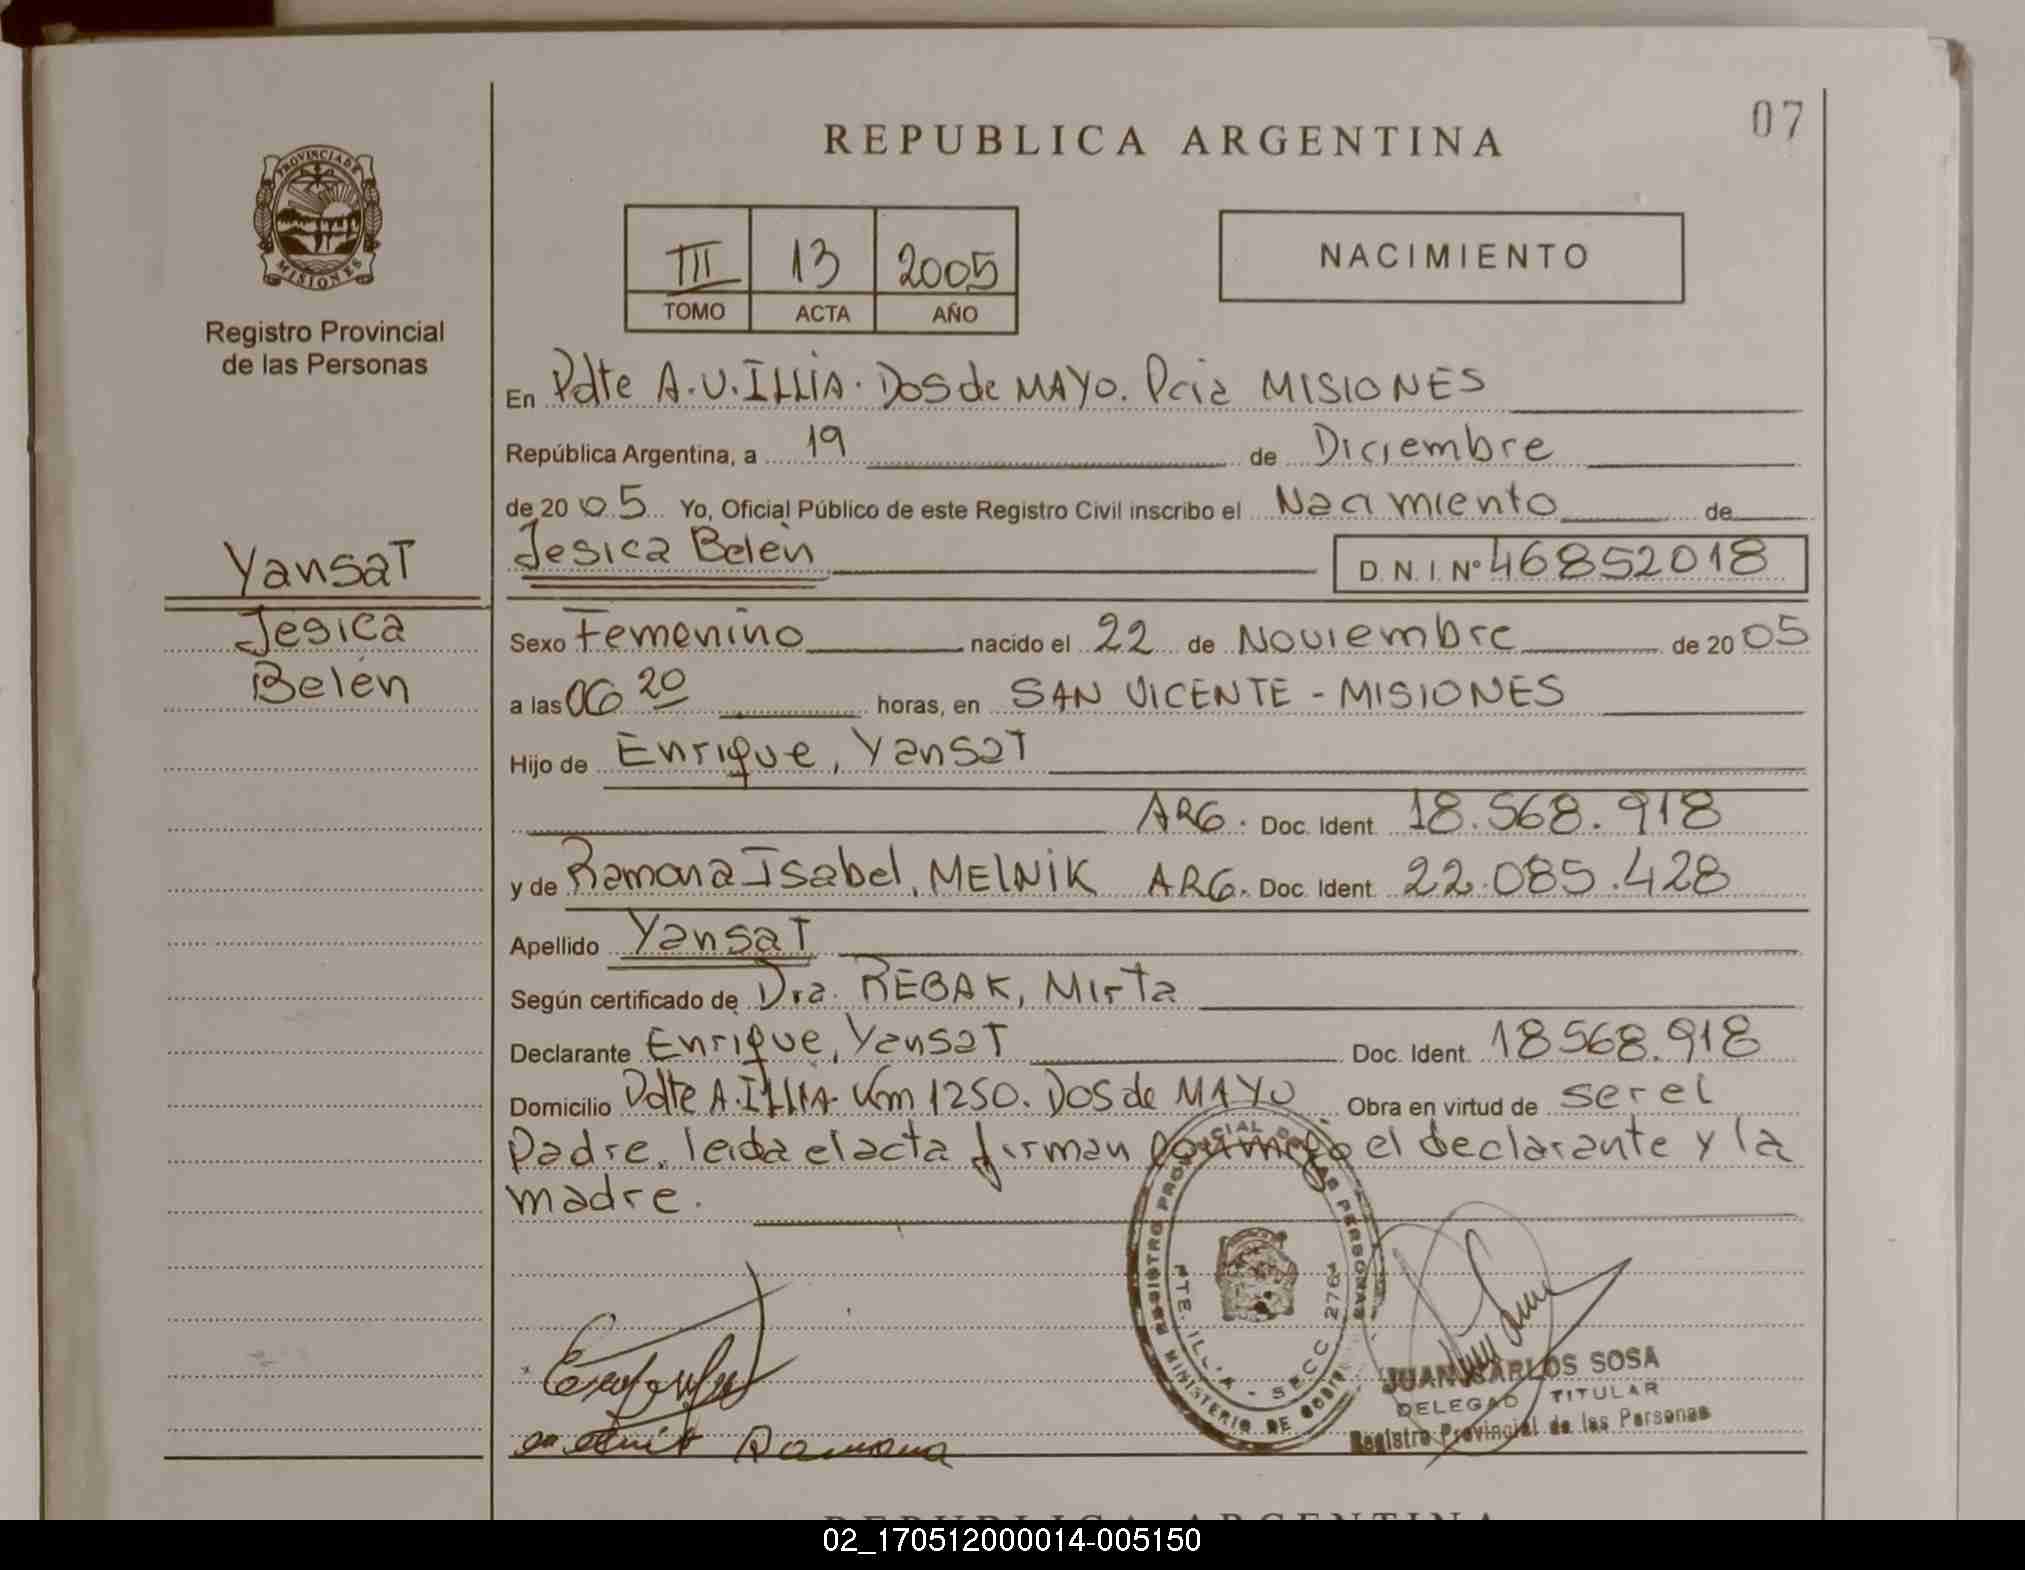 07
REPUBLICA ARGENTINA
PROVINCIA DE
MISIONES
Registro Provincial
de las Personas
III 13 2005
TOMO ACTA AÑO
NACIMIENTO
En Pdte A.U.ILLIA. Dos de MAYO. Pcia MISIONES
República Argentina, a 19 de Diciembre
de 2005 Yo, Oficial Público de este Registro Civil inscribo el Nacimiento de
Yansat
Jesica
Belén
Jesica Belén D. N. I. Nº 46852018
Sexo Femenino nacido el 22 de Noviembre de 2005
a las 06 20 horas, en SAN VICENTE - MISIONES
Hijo de Enrique, Yansat
ARG. Doc. Ident. 18.568.918
y de Ramona Isabel, MELNIK ARG. Doc. Ident. 22.085.428
Apellido Yansat
Según certificado de Dra. REBAK, Mirta
Declarante Enrique, Yansat Doc. Ident. 18568.918
Domicilio Pdte A.ILLIA. Km 1250. Dos de MAYO Obra en virtud de ser el
Padre. leida el acta firman conmigo el declarante y la
madre.
REGISTRO PROVINCIAL DE LAS PERSONAS
MINISTERIO DE GOBIERNO
PTE. ILLIA - SECC 2764
JUAN CARLOS SOSA
DELEGADO TITULAR
Registro Provincial de las Personas
Ramona
REPUBLICA ARGENTINA
02_170512000014-005150